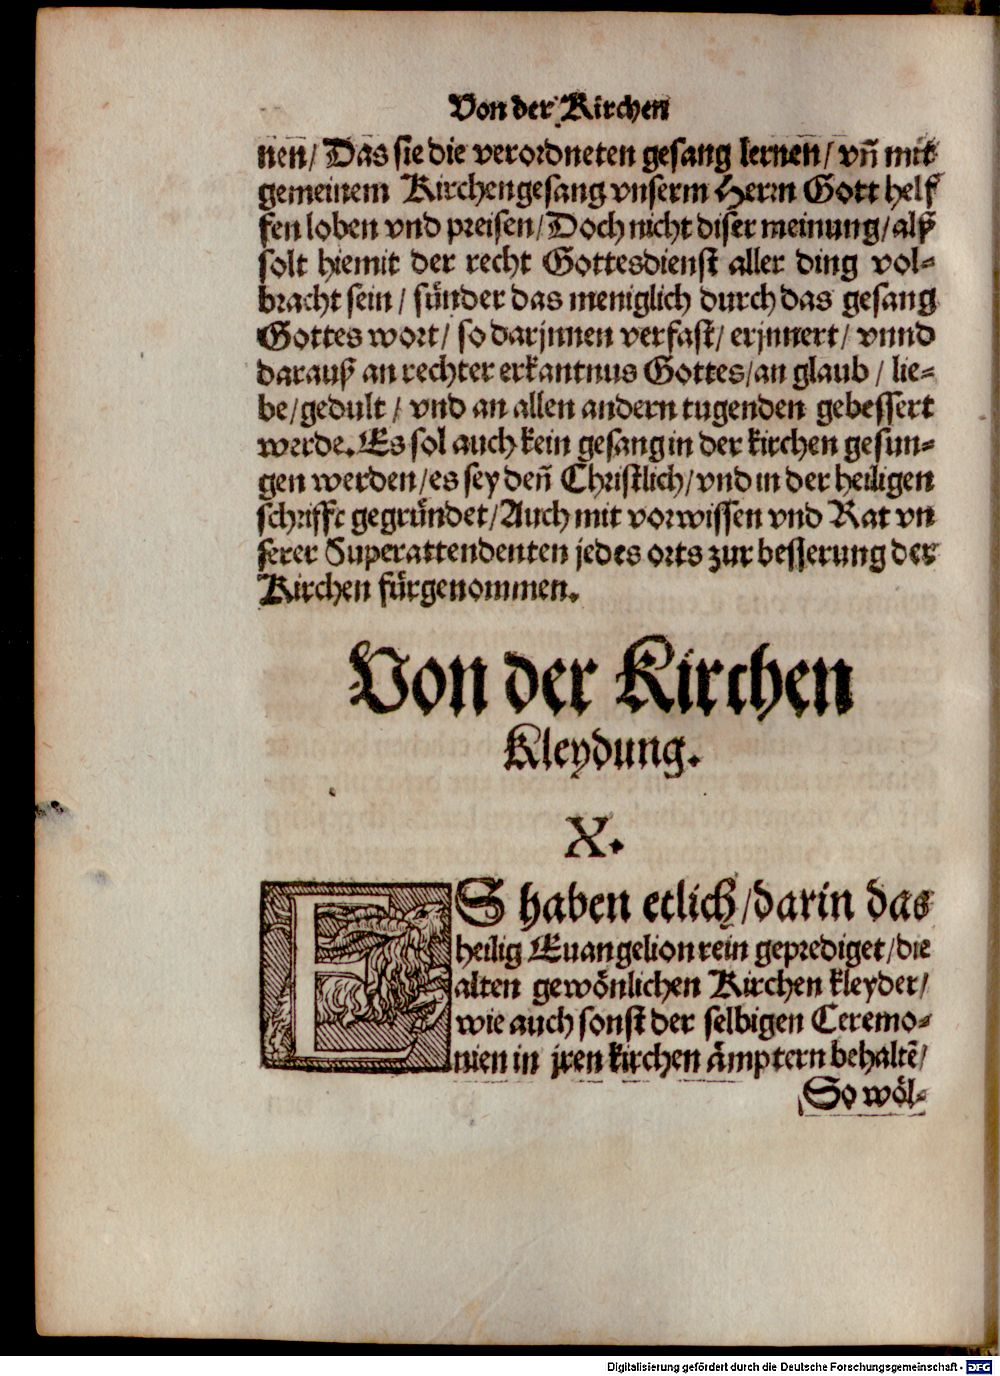 Von der Kirchen
nen/ Das sie die verordneten gesang lernen/ vñ mit
gemeinem Kirchengesang vnserm Herrn Gott helf
fen loben vnd preisen/ Doch nicht diser meinung/ alß
solt hiemit der recht Gottesdienst aller ding vol-
bracht sein/ sünder das meniglich durch das gesang
Gottes wort/ so darjnnen verfast/ erjnnert/ vnnd
darauß an rechter erkantnus Gottes/ an glaub/ lie-
be/ gedult/ vnd an allen andern tugenden gebessert
werde. Es sol auch kein gesang in der kirchen gesun-
gen werden/ es sey deñ Christlich/ vnd in der heiligen
schrifft gegründet/ Auch mit vorwissen vnd Rat vn
serer Superattendenten jedes orts zur besserung der
Kirchen fürgenommen.
Von der Kirchen
Kleydung.
X.
ES haben etlich/ darin das
heilig Euangelion rein geprediget/ die
alten gewönlichen Kirchen kleyder/
wie auch sonst der selbigen Ceremo-
nien in jren kirchen ämptern behaltẽ/
So wöl-
Digitalisierung gefördert durch die Deutsche Forschungsgemeinschaft - DFG